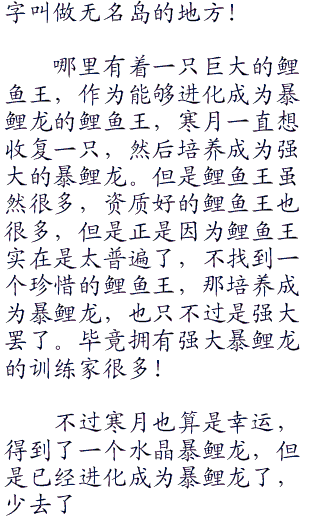 字叫做无名岛的地方！
哪里有着一只巨大的鲤
鱼王，作为能够进化成为暴
鲤龙的鲤鱼王，寒月一直想
收复一只，然后培养成为强
大的暴鲤龙。但是鲤鱼王虽
然很多，资质好的鲤鱼王也
很多，但是正是因为鲤鱼王
实在是太普遍了，不找到一
个珍惜的鲤鱼王，那培养成
为暴鲤龙，也只不过是强大
罢了。毕竟拥有强大暴鲤龙
的训练家很多！
不过寒月也算是幸运，
得到了一个水晶暴鲤龙，但
是已经进化成为暴鲤龙了，
少去了